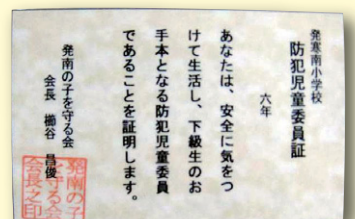 発寒南小学校
防犯児童委員証
六年
あなたは、安全に気をつ
けて生活し、下級生のお
手本となる防犯児童委員
であることを証明します。
発南の子を守る会
会長 櫛谷 昌俊
発南の子
を守る会
会長之印